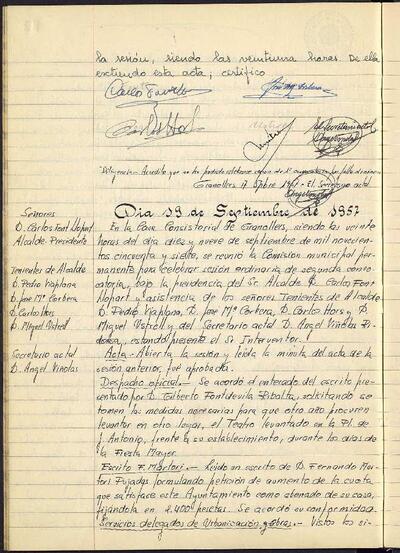 la sesión, siendo las veintiuna horas. De ella
extiendo esta acta; certifico
Diligencia.- Acredito que no ha podido celebrarse
Granollers Sepbre 1957 - El Secretario actal
Señores
D. Carlos Font Llopart
Alcalde Presidente
Tenientes de Alcalde
D. Pedro Viaplana
D. José Mª Corbera
D. Carlos Hors
D. Miguel Vistrell
Secretario actal
D. Angel Viñolas
Dia 19 de Septiembre de 1957
En la Casa Consistorial de Granollers, siendo las veinte
horas del dia diez y nueve de septiembre de mil novecien-
tos cincuenta y siete, se reunió la Comision municipal per-
manente para celebrar sesión ordinaria de segunda convo-
catoria, bajo la presidencia del Sr. Alcalde D. Carlos Font
Llopart y asistencia de los señores Tenientes de Alcalde
D. Pedro Viaplana, D. José Mª Corbera, D. Carlos Hors y D.
Miguel Vistrell y del Secretario actal D. Angel Viñolas
estando presente el Sr. Interventor.
Acta.- Abierta la sesión y leida la minuta del acta de la
sesión anterior, fué aprobada.
Despacho oficial.- Se acordó el enterado del escrito pre-
sentado por D. Gilberto Fontdevila Ribalta, solicitando se
tomen las medidas necesarias para que otro año procuren
levantar en otro lugar, el Teatro levantado en la Pl. de
J. Antonio, frente a su establecimiento, durante los dias de
la Fiesta Mayor.
Escrito F. Martori.- Leido un escrito de D. Fernando Mar-
tori Pujadas formulando petición de aumento de la cuota
que satisface este Ayuntamiento como abonado de su casa,
fijándola en 2.400 pesetas. Se acordó su conformidad.
Servicios delegados de Urbanización y obras.- Vistos los si-